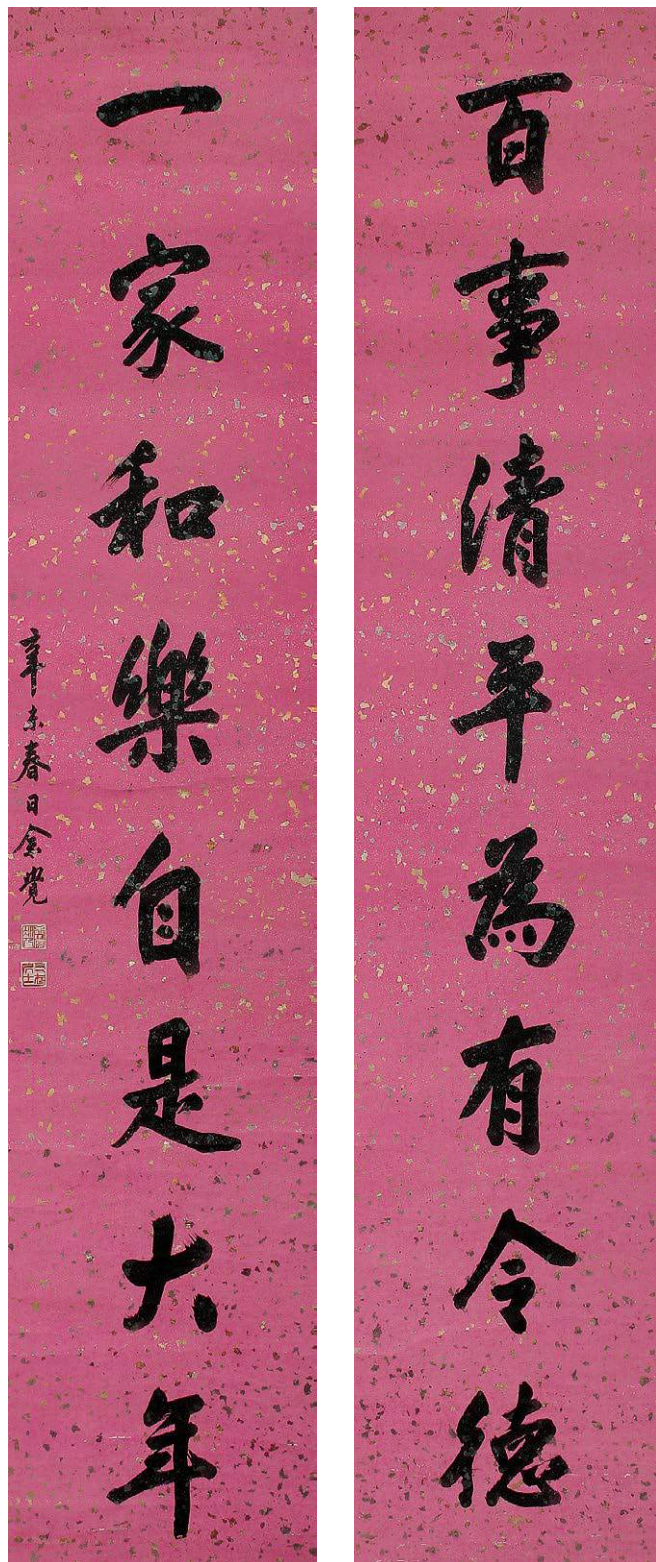 百事清平為有令德
一家和樂自是大年
辛未春日念覺